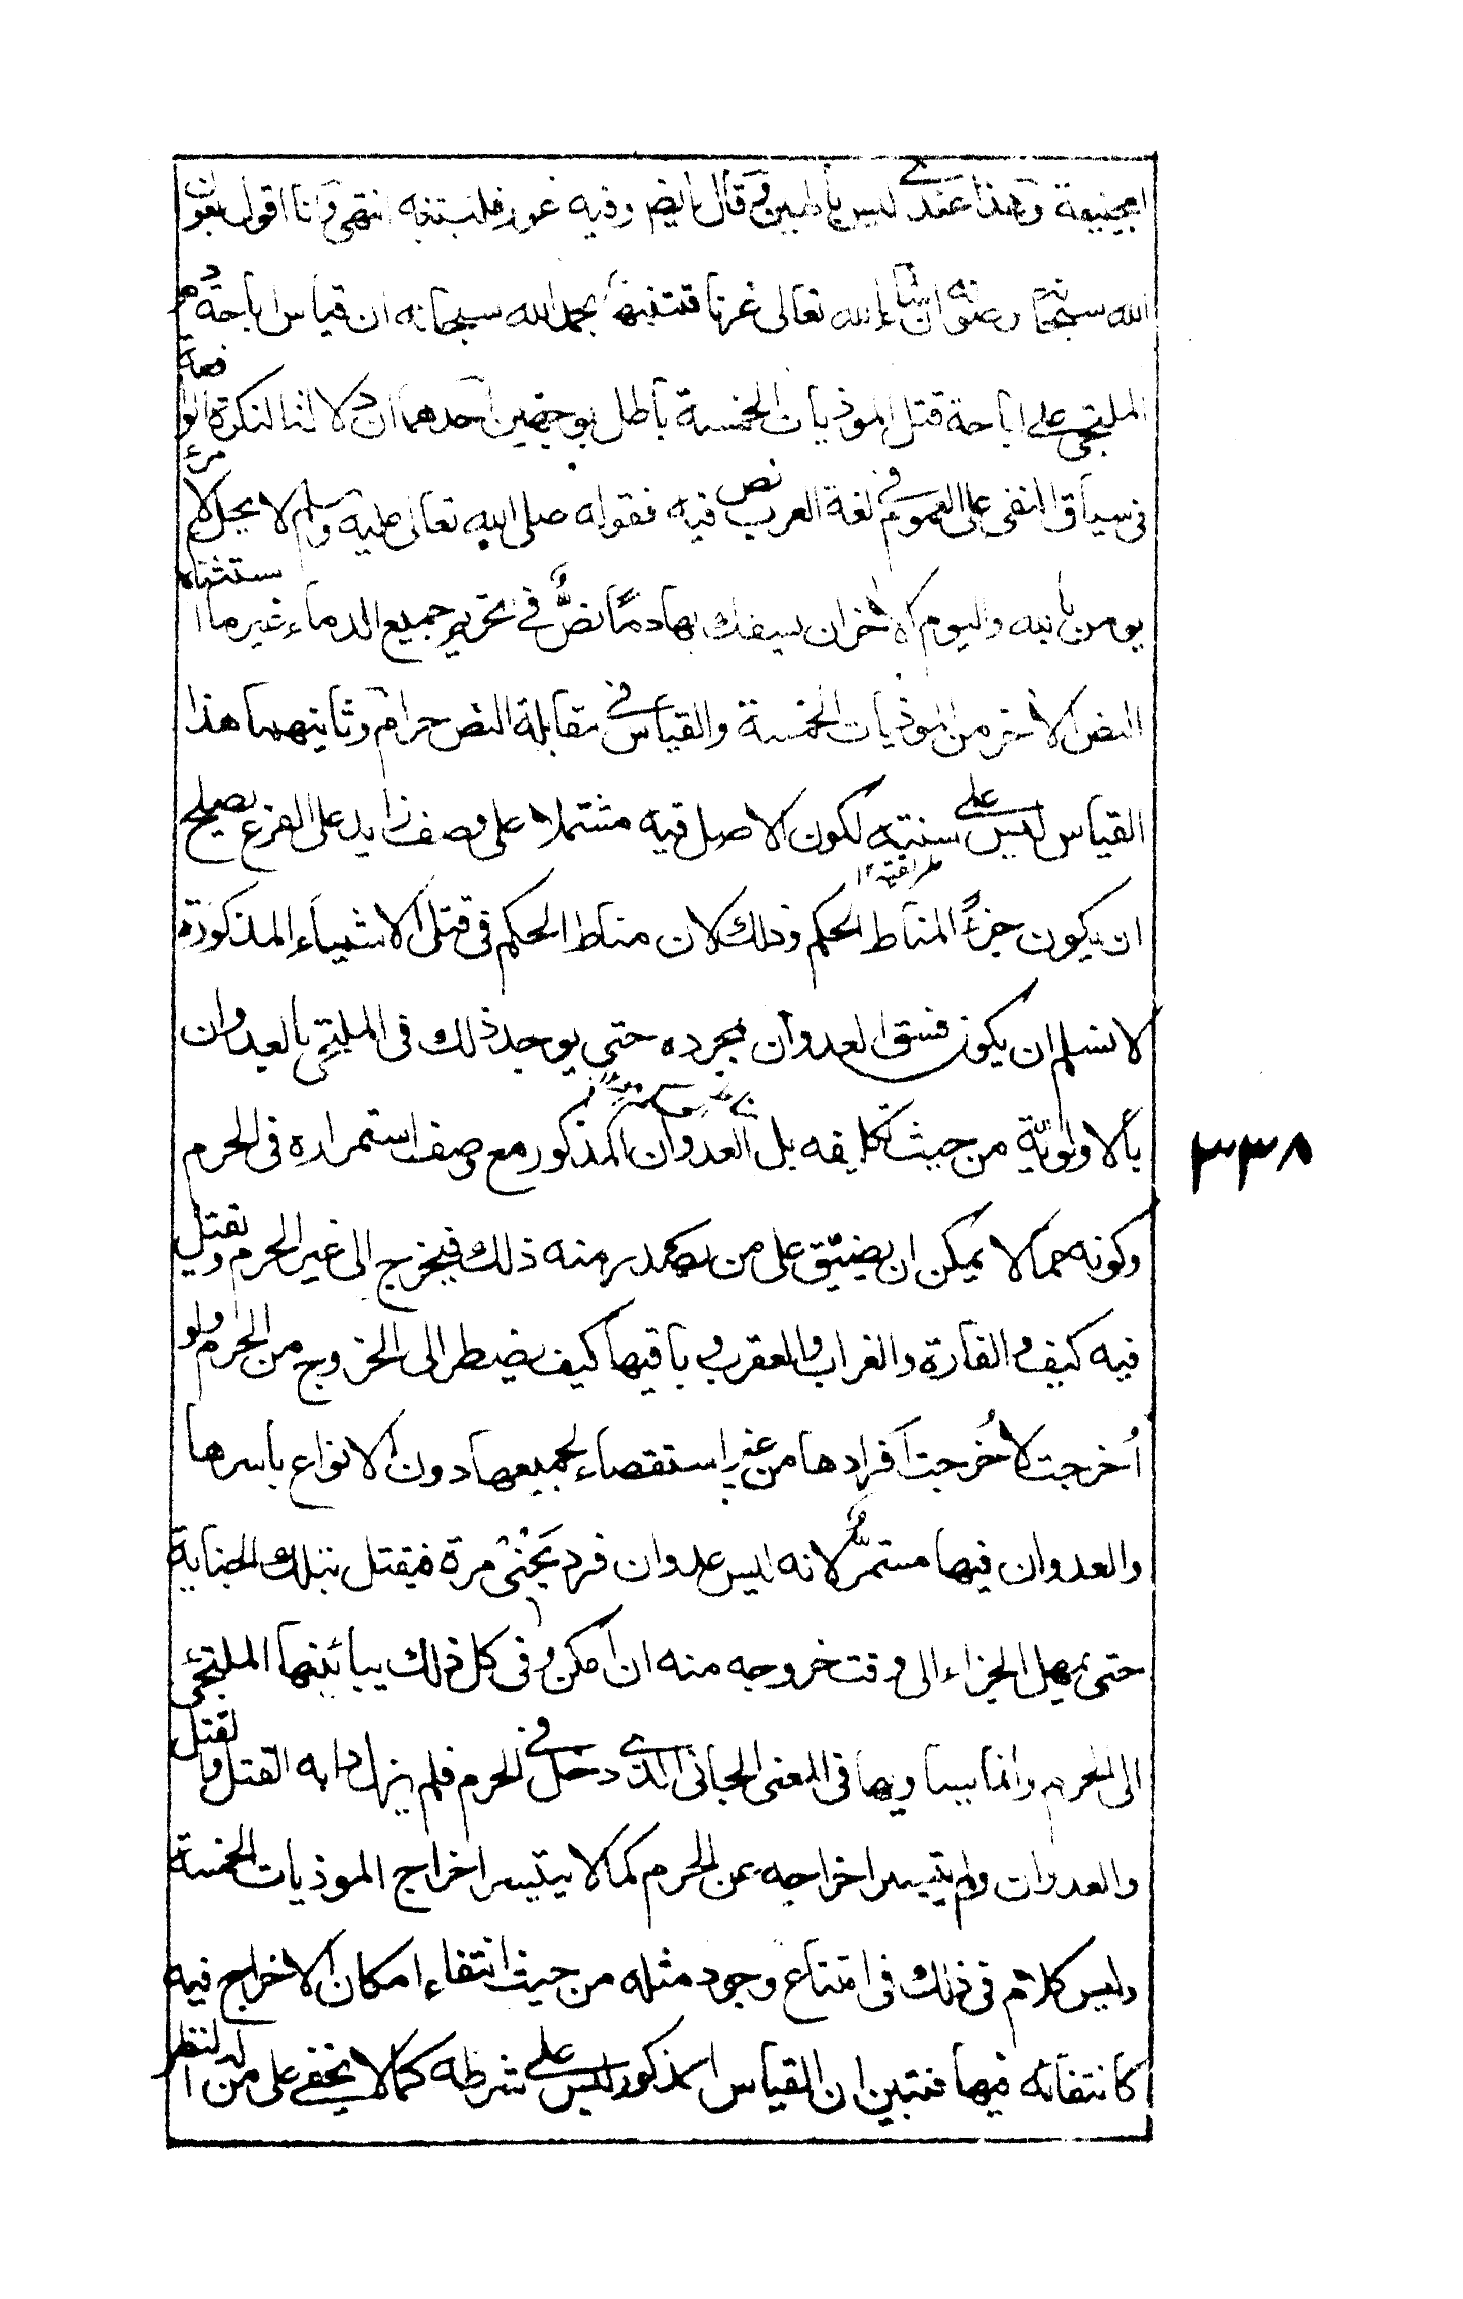 ابيحنيفة وهذا عندي ليس باطمين وقال ايضا وفيه غور فليتنبه انتهى وانا اقول بعون
الله سبحانه ومنه ان شاء الله تعالى غرنا فتنبهنا بحمد الله سبحانه ان قياس اباحة دم
الملتجي على اباحة قتل الموذيات الخمسة باطل بوجهين احدهما ان دلالة النكرة الواقعة
في سياق النفي على العموم في لغة العرب نص فيه فقوله صلى الله تعالى عليه وسلم لا يحل لامرئ
يومن بالله واليوم الاخر ان يسفك بها دمًا نصٌّ في تحريم جميع الدماء غير ما استثناه
النص الاخر من الموذيات الخمسة والقياس في مقابلة النص حرام وثانيهما هذا
القياس ليس على سنته لكون الاصل فيه مشتملا على وصف زايد على الفرع يصلح
طريقته ١٢
ان يكون جزءً المناط الحكم وذلك لان مناط الحكم في قتل الاشياء المذكورة
لا نسلم ان يكون فسق العدوان بمجرده حتى يوجد ذلك في الملتجي بالعدوان
بالاولويّة من حيث تكليفه بل العدوان المذكور مع وصف استمراره في الحرم
وكونه مما لا يمكن ان يضيّق على من يصدر منه ذلك فيخرج الى غير الحرم ويقتل
فيه كيف والفارة والغراب والعقرب وباقيها كيف يضطر الى الخروج من الحرم ولو
اُخرجت لاُخرجت افرادها من غير استقصاء لجميعها دون الانواع باسرها
والعدوان فيها مستمرٌّ لانه ليس عدوان فرد يَجْنى مرة فيقتل بتلك الجناية
حتى يمهل الجزاء الى وقت خروجه منه ان امكن وفي كل ذلك يباينها الملتجئ
الى الحرم وانما يساويها في المعنى الجاني الذي دخل في الحرم فلم يزل دابه القتل والقتل
والعدوان ولم يتيسر اخراجه عن الحرم كما لا يتيسر اخراج الموذيات الخمسة
وليس كلامٌ في ذلك في امتناع وجود مثله من حيث انتفاء امكان الاخراج فيه
كانتفائه فيها فتبين ان القياس المذكور ليس على شرطه كما لا يخفى على من له النظر
٣٣٨